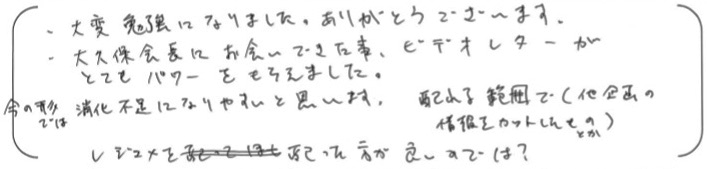 ・大変勉強になりました。ありがとうございます。
・大久保会長にお会いできた事、ビデオレターが
とてもパワーをもらえました。
今の形では 消化不足になりやすいと思います。 配れる範囲で(他企画の
情報をカットしたものとか)
レジュメを配った方が良いのでは?